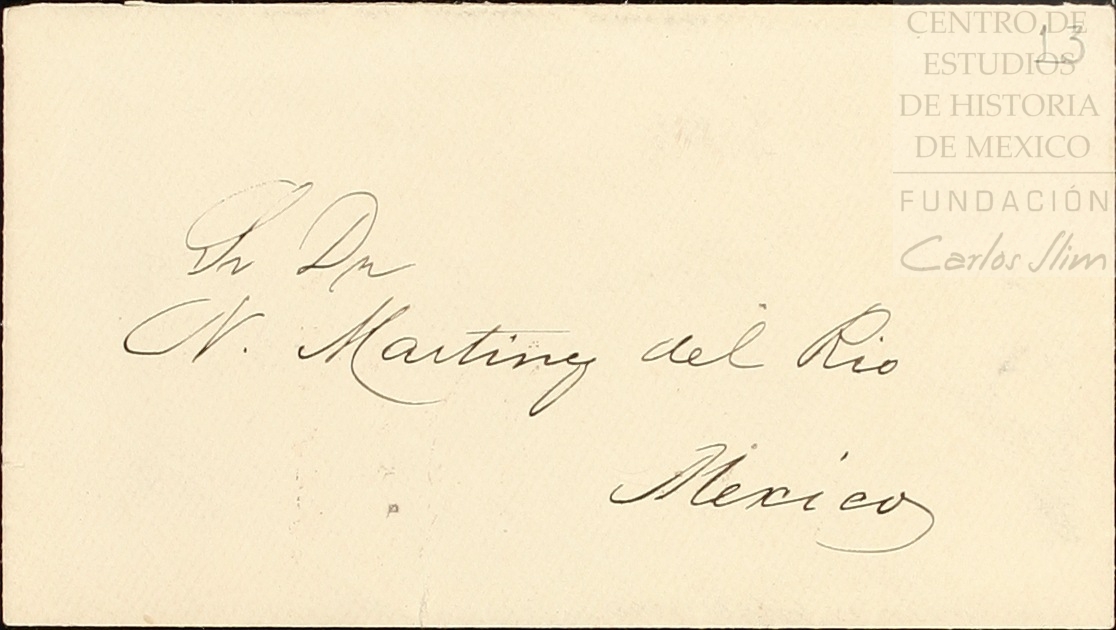 CENTRO DE
ESTUDIOS
DE HISTORIA
DE MEXICO
FUNDACIÓN
Carlos Slim
13
Sr Dr
N. Martinez del Rio
Mexico